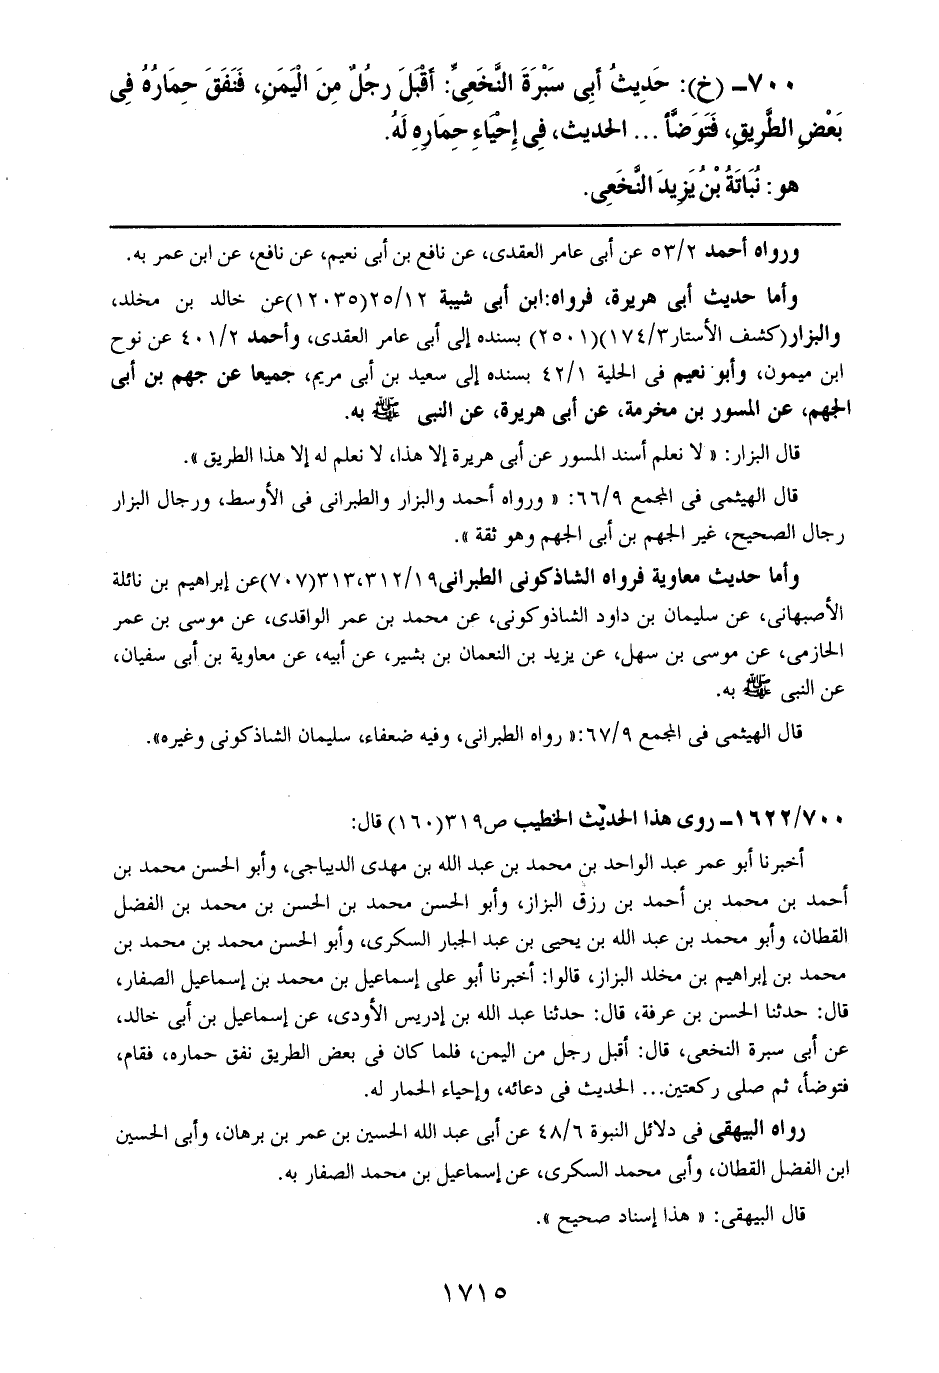 ٧٠٠ـ (خ): حَدِيثُ أَبِى سَبْرَةَ النَّخَعِىِّ: أَقْبَلَ رَجُلٌ مِنَ الْيَمَنِ، فَنَفَقَ حِمَارُهُ فِى
بَعْضِ الطَّرِيقِ، فَتَوَضَّأَ ... الحديث، فِى إِحْيَاءِ حِمَارِهِ لَهُ.
هو: نُبَاتَةُ بْنُ يَزِيدَ النَّخَعِى.
ورواه أحمد ٥٣/٢ عن أبى عامر العقدى، عن نافع بن أبى نعيم، عن نافع، عن ابن عمر به.
وأما حديث أبى هريرة، فرواه:ابن أبى شيبة ٢٥/١٢(١٢٠٣٥)عن خالد بن مخلد،
والبزار(كشف الأستار١٧٤/٣)(٢٥٠١) بسنده إلى أبى عامر العقدى، وأحمد ٤٠١/٢ عن نوح
ابن ميمون، وأبو نعيم فى الحلية ٤٢/١ بسنده إلى سعيد بن أبى مريم، جميعا عن جهم بن أبى
الجهم، عن المسور بن مخرمة، عن أبى هريرة، عن النبى ﷺ به.
قال البزار: « لا نعلم أسند المسور عن أبى هريرة إلا هذا، لا نعلم له إلا هذا الطريق ».
قال الهيثمى فى المجمع ٦٦/٩: « ورواه أحمد والبزار والطبرانى فى الأوسط، ورجال البزار
رجال الصحيح، غير الجهم بن أبى الجهم وهو ثقة ».
وأما حديث معاوية فرواه الشاذكونى الطبرانى٣١٣،٣١٢/١٩(٧٠٧)عن إبراهيم بن نائلة
الأصبهانى، عن سليمان بن داود الشاذوكونى، عن محمد بن عمر الواقدى، عن موسى بن عمر
الحازمى، عن موسى بن سهل، عن يزيد بن النعمان بن بشير، عن أبيه، عن معاوية بن أبى سفيان،
عن النبى ﷺ به.
قال الهيثمى فى المجمع ٦٧/٩:« رواه الطبرانى، وفيه ضعفاء، سليمان الشاذكونى وغيره».
١٦٢٢/٧٠٠ـ روى هذا الحديث الخطيب ص٣١٩(١٦٠) قال:
أخبرنا أبو عمر عبد الواحد بن محمد بن عبد الله بن مهدى الديباجى، وأبو الحسن محمد بن
أحمد بن محمد بن أحمد بن رزق البزاز، وأبو الحسن محمد بن الحسن بن محمد بن الفضل
القطان، وأبو محمد بن عبد الله بن يحيى بن عبد الجبار السكرى، وأبو الحسن محمد بن محمد بن
محمد بن إبراهيم بن مخلد البزاز، قالوا: أخبرنا أبو على إسماعيل بن محمد بن إسماعيل الصفار،
قال: حدثنا الحسن بن عرفة، قال: حدثنا عبد الله بن إدريس الأودى، عن إسماعيل بن أبى خالد،
عن أبى سبرة النخعى، قال: أقبل رجل من اليمن، فلما كان فى بعض الطريق نفق حماره، فقام،
فتوضأ، ثم صلى ركعتين... الحديث فى دعائه، وإحياء الحمار له.
رواه البيهقى فى دلائل النبوة ٤٨/٦ عن أبى عبد الله الحسين بن عمر بن برهان، وأبى الحسين
ابن الفضل القطان، وأبى محمد السكرى، عن إسماعيل بن محمد الصفار به.
قال البيهقى: « هذا إسناد صحيح ».
١٧١٥